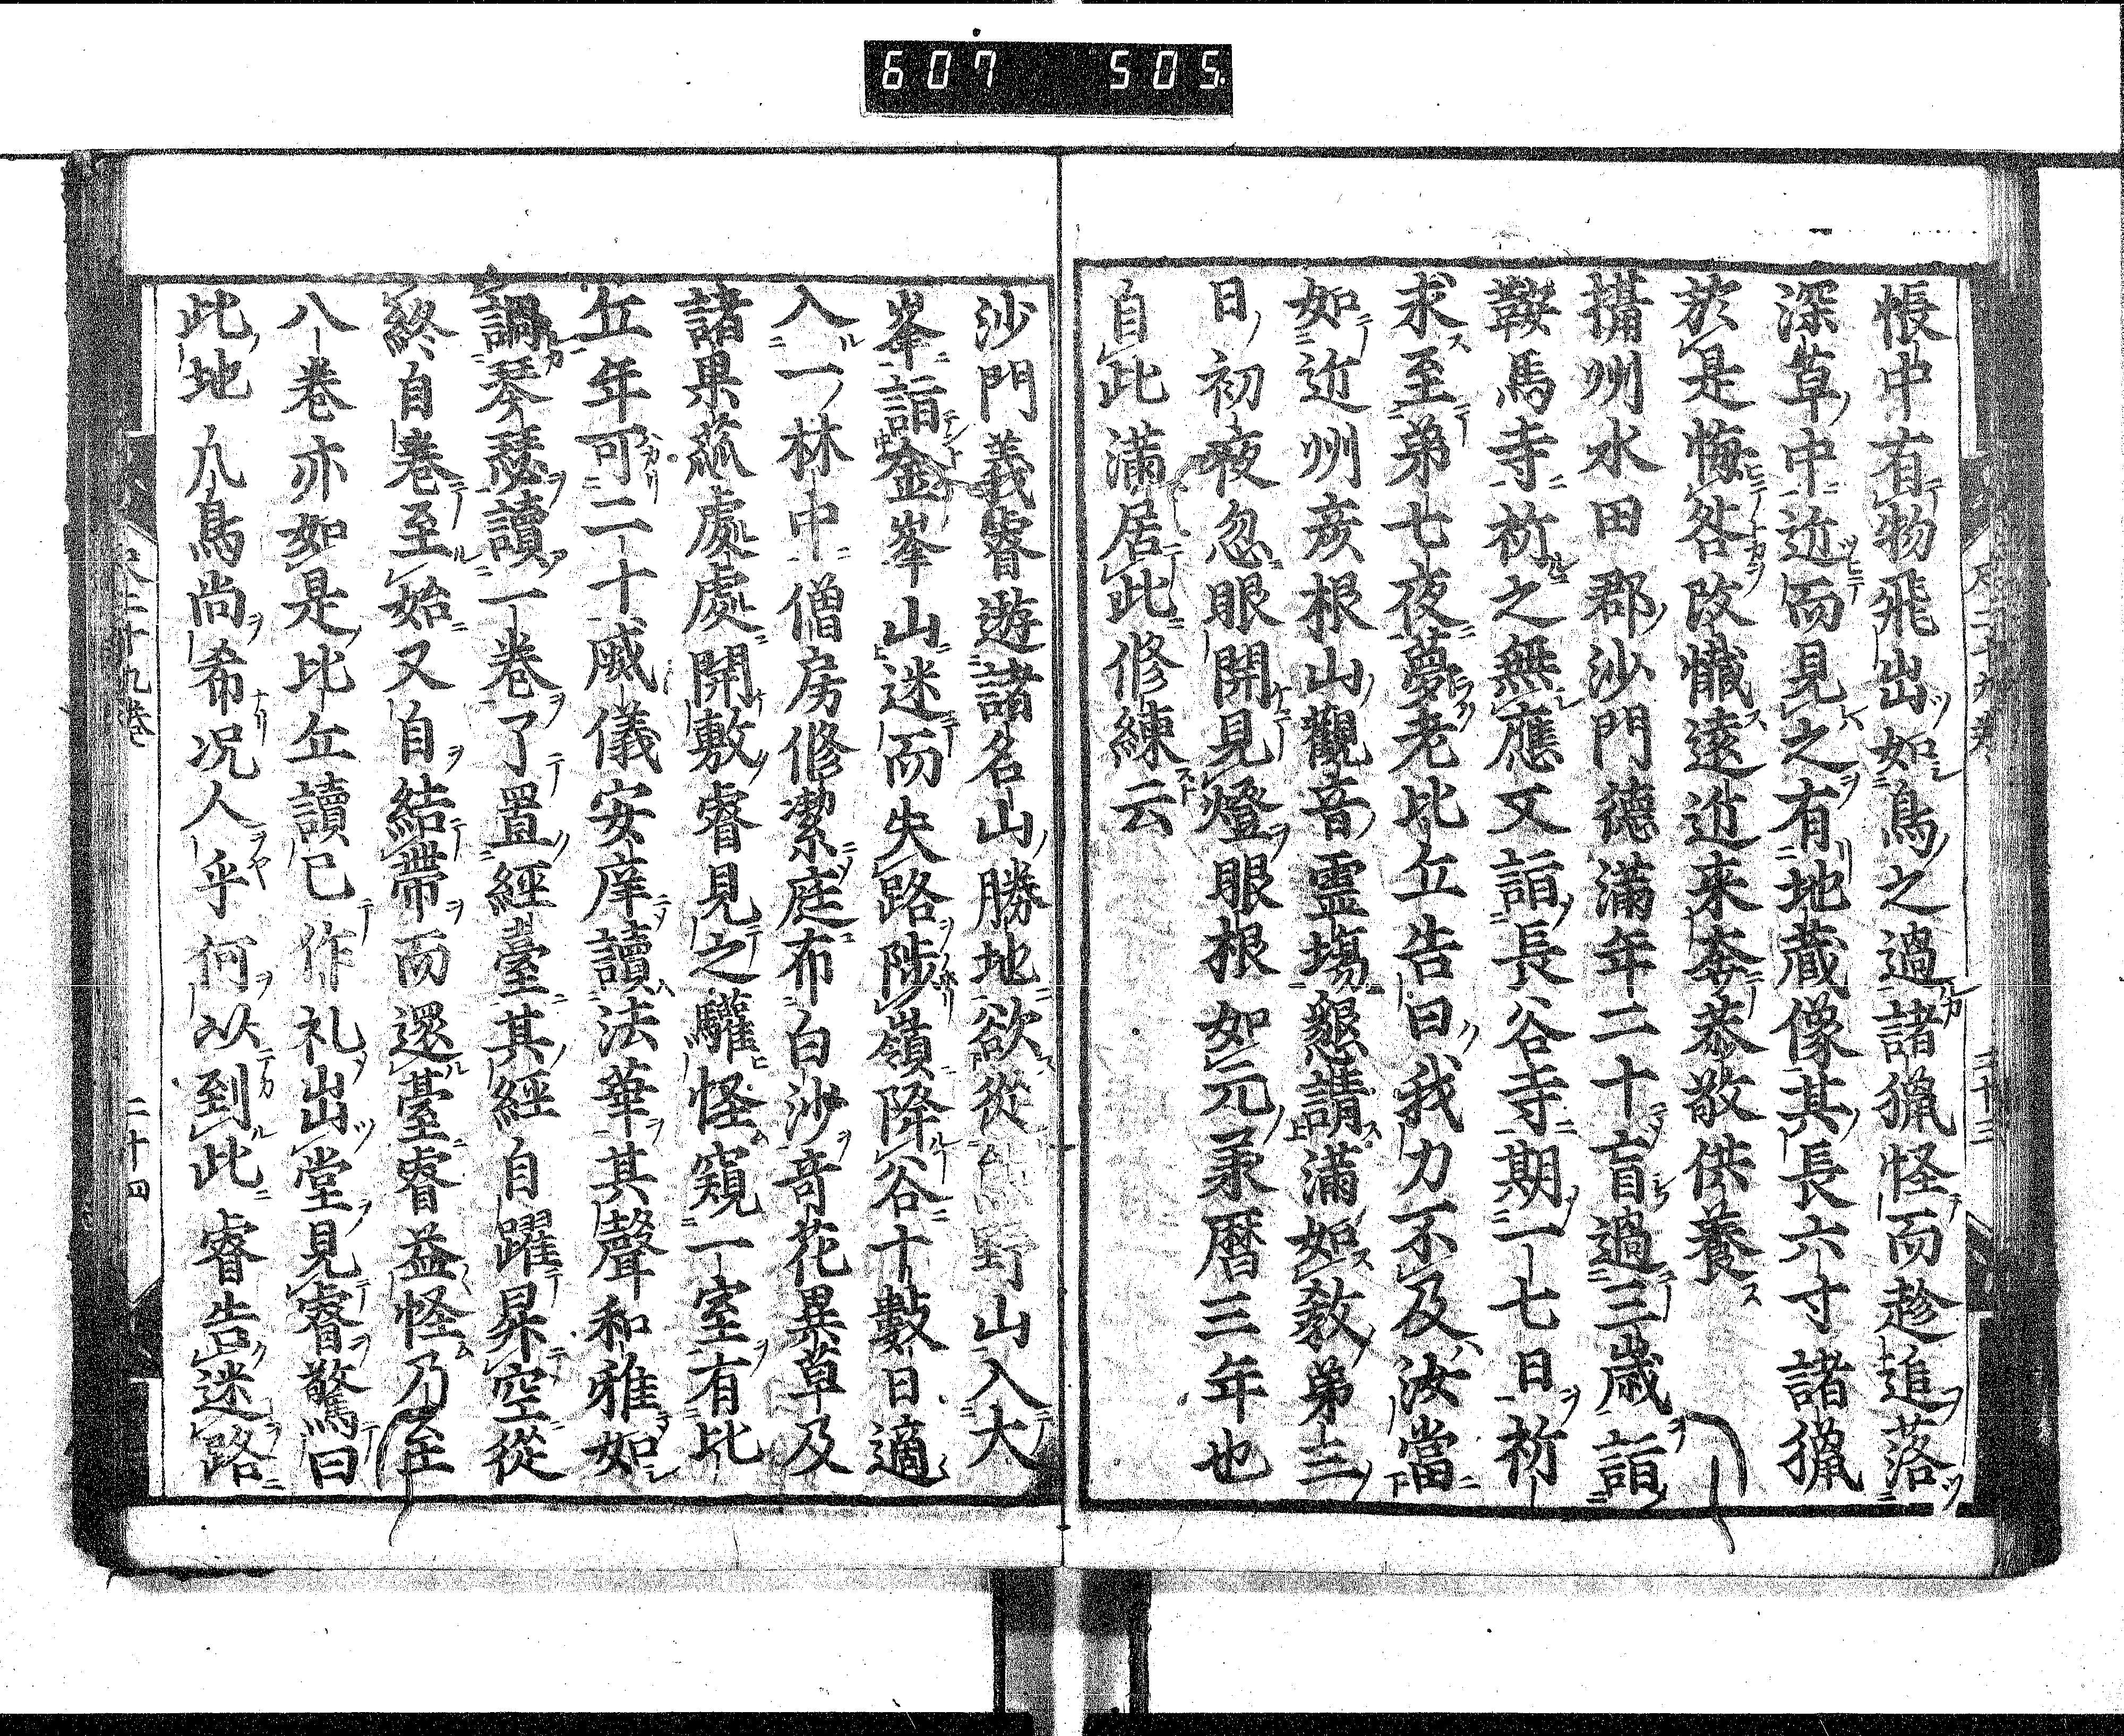 607 505
帳中有物飛出如鳥之過諸獵怪而趁追落
深草中近而見之有地蔵像其長六寸諸獵
於是悔咎改懺遠近来奉恭敬供養
攝州水田郡沙門德滿年二十盲過三歲詣
鞍馬寺祈之無應又詣長谷寺期一七日祈
求至弟七夜夢老比丘告曰我力不及汝當
如近州彦根山觀音霊場懇請滿如敎弟三
日初夜忽眼開見燈眼根如元承暦三年也
自此滿居此修練云
沙門義睿遊諸名山勝地欲從熊野山入大
峯詣金峯山迷而失路陟嶺降谷十數日適
入一林中僧房修潔庭布白沙奇花異草及
諸果蓏處處開敷睿見之驩怪窺一室有比
丘年可二十威儀安庠讀法華其聲和雅如
調琴瑟讀一卷了置經臺其經自躍昇空從
終自卷至始又自結帶而還臺睿益怪乃至
八卷亦如是比丘讀已作礼出堂見睿驚曰
此地凡鳥尚希况人乎何以到此睿告迷路
二十九卷
二十三
二十九卷
二十四